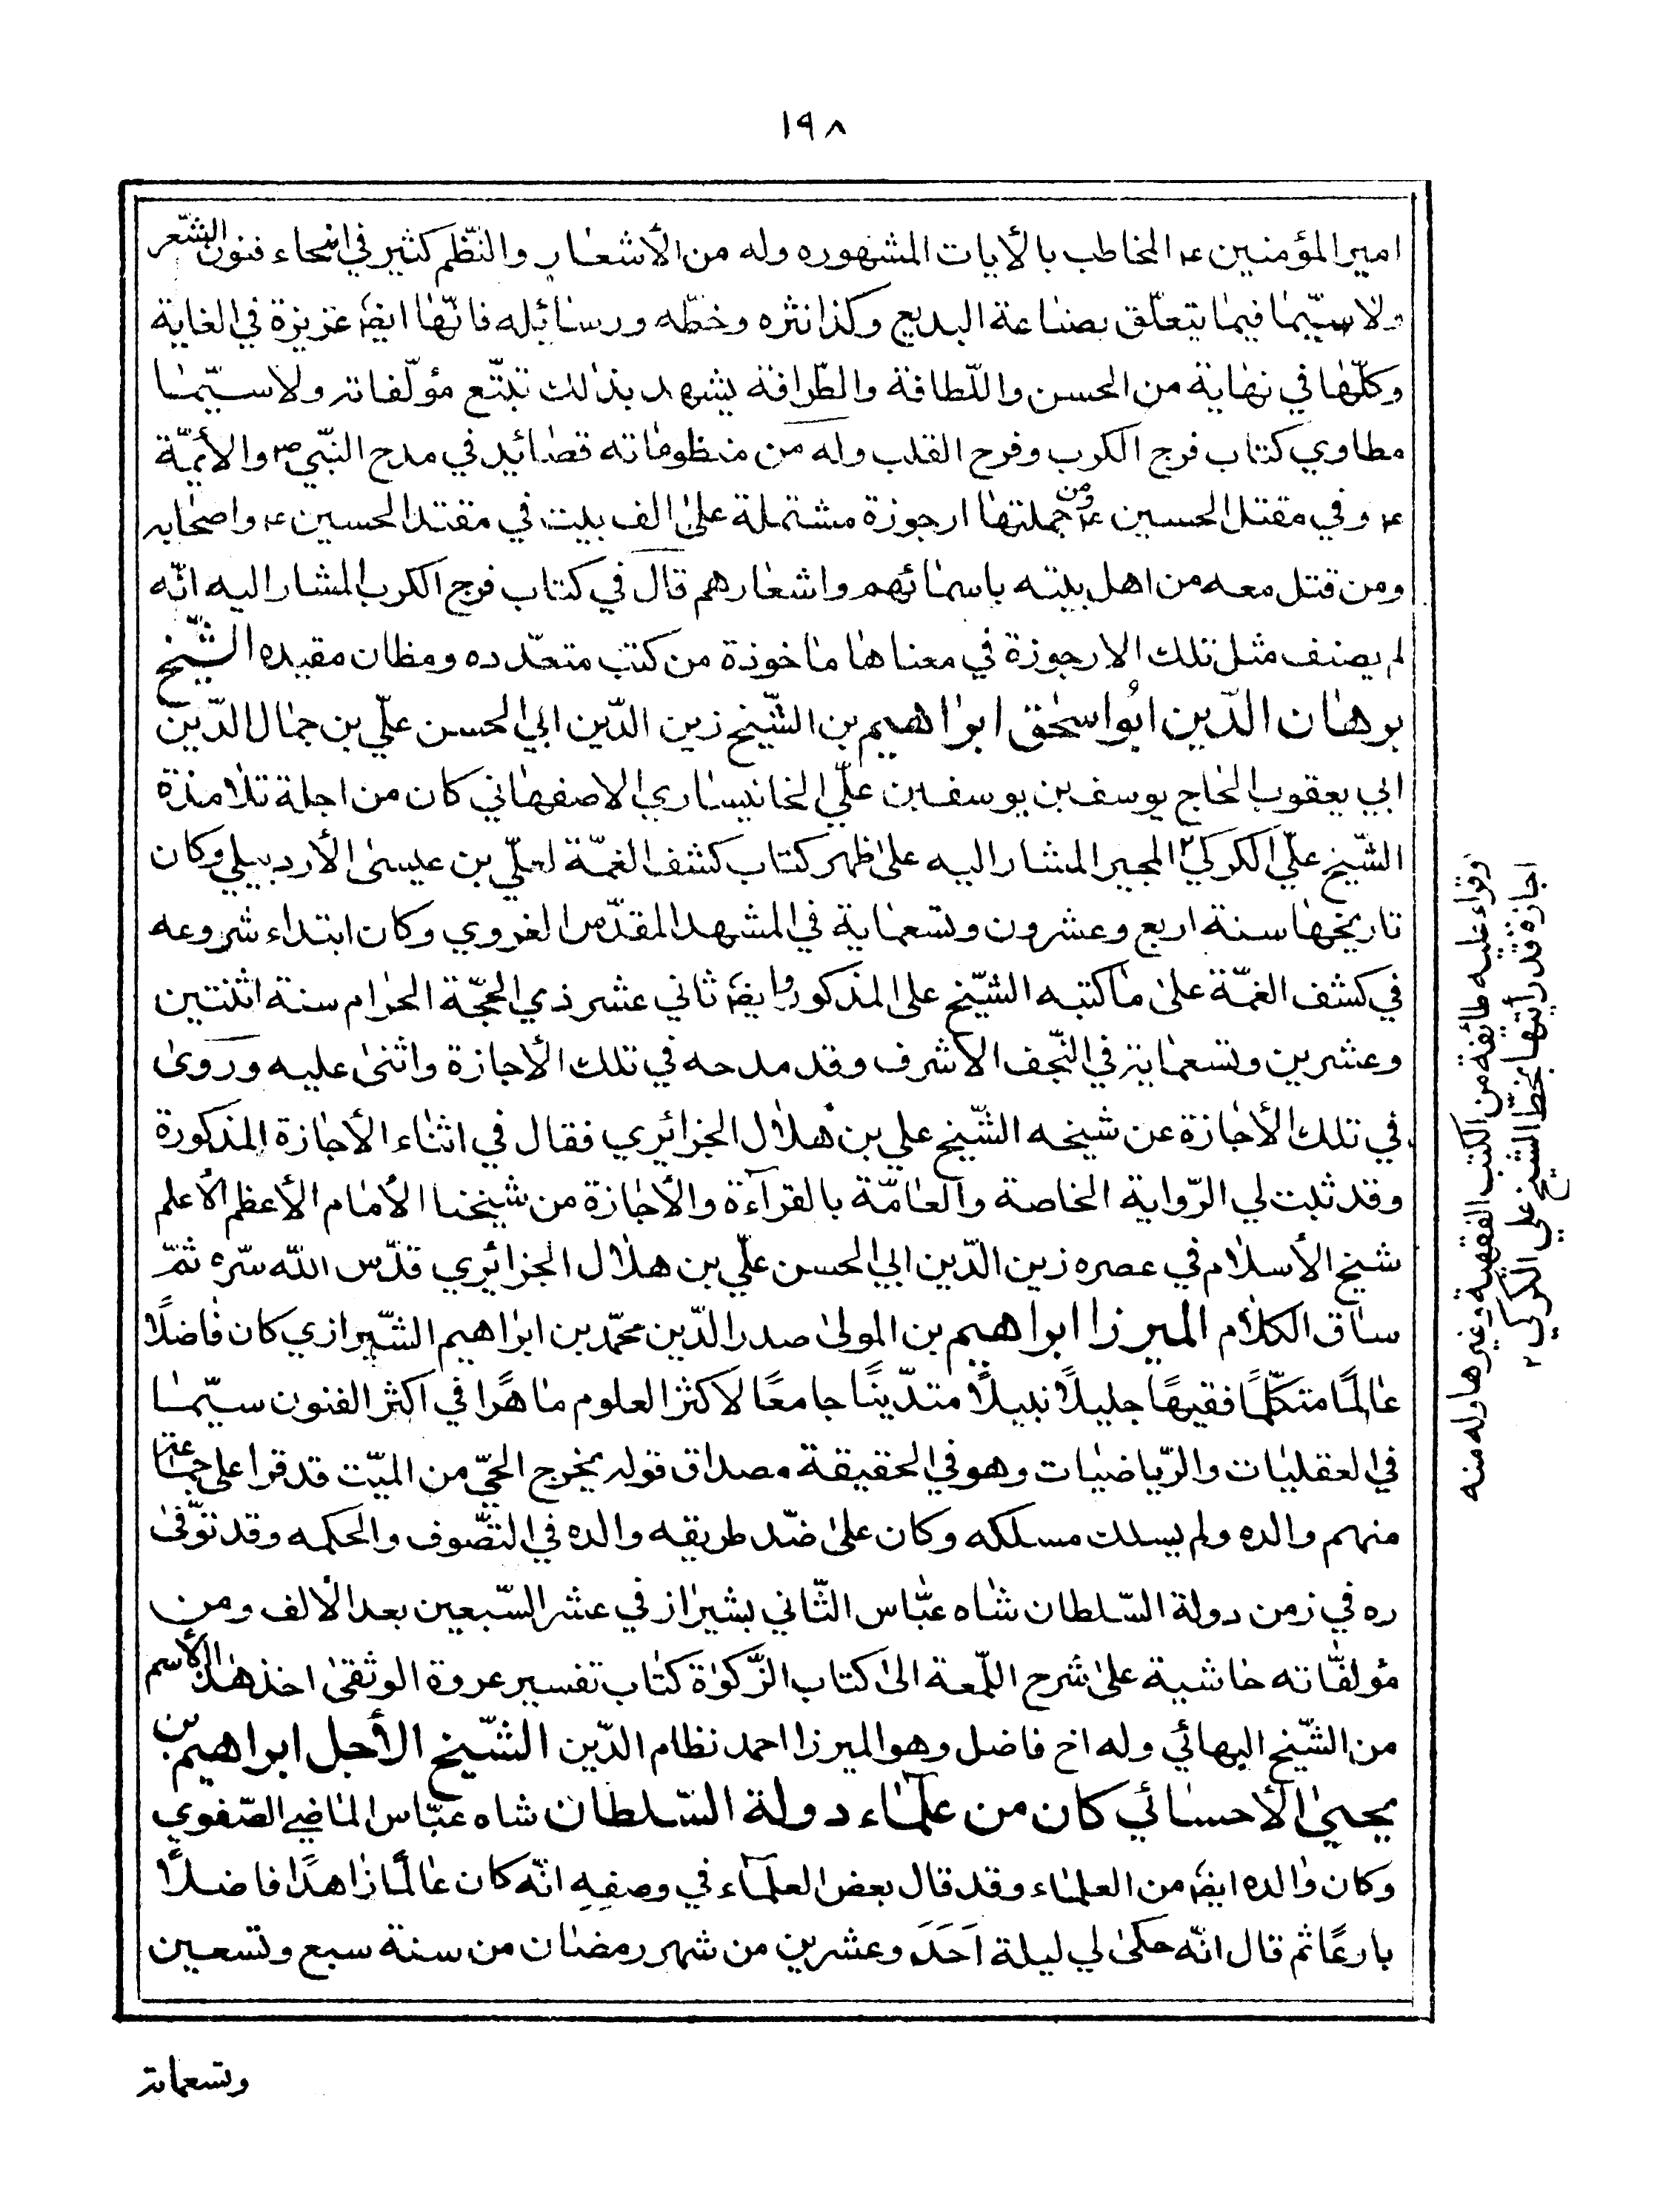 ١٩٨
امير المؤمنين ع المخاطب بالأيات المشهوره وله من الأشعار والنّظم كثير في انحاء فنون الشّعر
ولاسيّما فيما يتعلّق بصناعة البديع وكذا نثره وخطّه ورسائله فانّها ايضا عزيزة في الغاية
وكلّها في نهاية من الحسن واللّطافة والطّرافة يشهد بذلك تتبّع مؤلّفاته ولاسيّما
مطاوي كتاب فرج الكرب وفرح القلب وله من منظوماته قصائيد في مدح النّبي ص والأئمّة
ع وفي مقتل الحسين ع ومن جملتها ارجوزة مشتملة على الف بيت في مقتل الحسين ع واصحابه
ومن قتل معه من اهل بيته باسمائهم واشعارهم قال في كتاب فرج الكرب المشار اليه انّه
لم يصنف مثل تلك الارجوزة في معناها ماخوذة من كتب متعدّده ومظان مقيده الشّيخ
برهان الدّين ابُو اسحٰق ابراهيم بن الشّيخ زين الدّين ابي الحسن علّي بن جمال الدّين
ابي يعقوب الحاج يوسف بن يوسف بن علّي الخانيساري الاصفهاني كان من اجلة تلامذة
الشّيخ علّي الكركي ٢ المجير المشار اليه على ظهر كتاب كشف الغمّة لعلّي بن عيسى الأردبيلي وكان
تاريخها سنة اربع وعشرون وتسعماية في المشهد المقدّس الغروي وكان ابتداء شروعه
في كشف الغمّة على ما كتبه الشّيخ على المذكور ايضا ثاني عشر ذي الحجّة الحرام سنة اثنتين
وعشرين وتسعماية في النّجف الاشرف وقد مدحه في تلك الأجازة واثنى عليه وروى
في تلك الأجازة عن شيخه الشّيخ علي بن هلال الجزائري فقال في اثناء الأجازة المذكورة
وقد ثبت لي الرّواية الخاصة والعامّة بالقرآءة والأجازة من شيخنا الأمام الأعظم الأعلم
شيخ الأسلام في عصره زين الدّين ابي الحسن علّي بن هلال الجزائري قدّس اللّه سّره ثمّ
ساق الكلام الميرزا ابراهيم بن المولى صدر الدّين محمّد بن ابراهيم الشّيرازي كان فاضلًا
عالمًا متكلّمًا فقيهًا جليلًا نبيلًا متدّينًا جامعًا لاكثر العلوم ماهرًا في اكثر الفنون سيّما
في العقليات والرّياضيات وهو في الحقيقة مصداق قوله يخرج الحيّ من الميّت قد قرا على جماعة
منهم والده ولم يسلك مسلكه وكان على ضّد طريقه والده في التّصّوف والحكمه وقد توّفى
ره في زمن دولة السّلطان شاه عبّاس الثّاني بشيراز في عشر السّبعين بعد الألف ومن
مؤلفّاته حاشية على شرح اللّمعة الى كتاب الزّكوٰة كتاب تفسير عروة الوثقى اخذ هذا الأسم
من الشّيخ البهائي وله اخ فاضل وهو الميرزا احمد نظام الدّين الشّيخ الأجل ابراهيم بن
يحيىٰ الأحسائي كان من علمآء دولة السّلطان شاه عبّاس الماضي الصّفوي
وكان والده ايضا من العلماء وقد قال بعض العلمآء في وصفِهِ انّه كان عالمًا زاهدًا فاضلًا
بارعًا ثم قال انّه حكى لي ليلة اَحَدَ وعشرين من شهر رمضان من سنة سبع وتسعين
وتسعماية
وقراء عليه طائفة من الكتب الفقهية وغيرها وله منه
اجازة قد رأيتها بخطّ الشيخ علي الكركي ٢